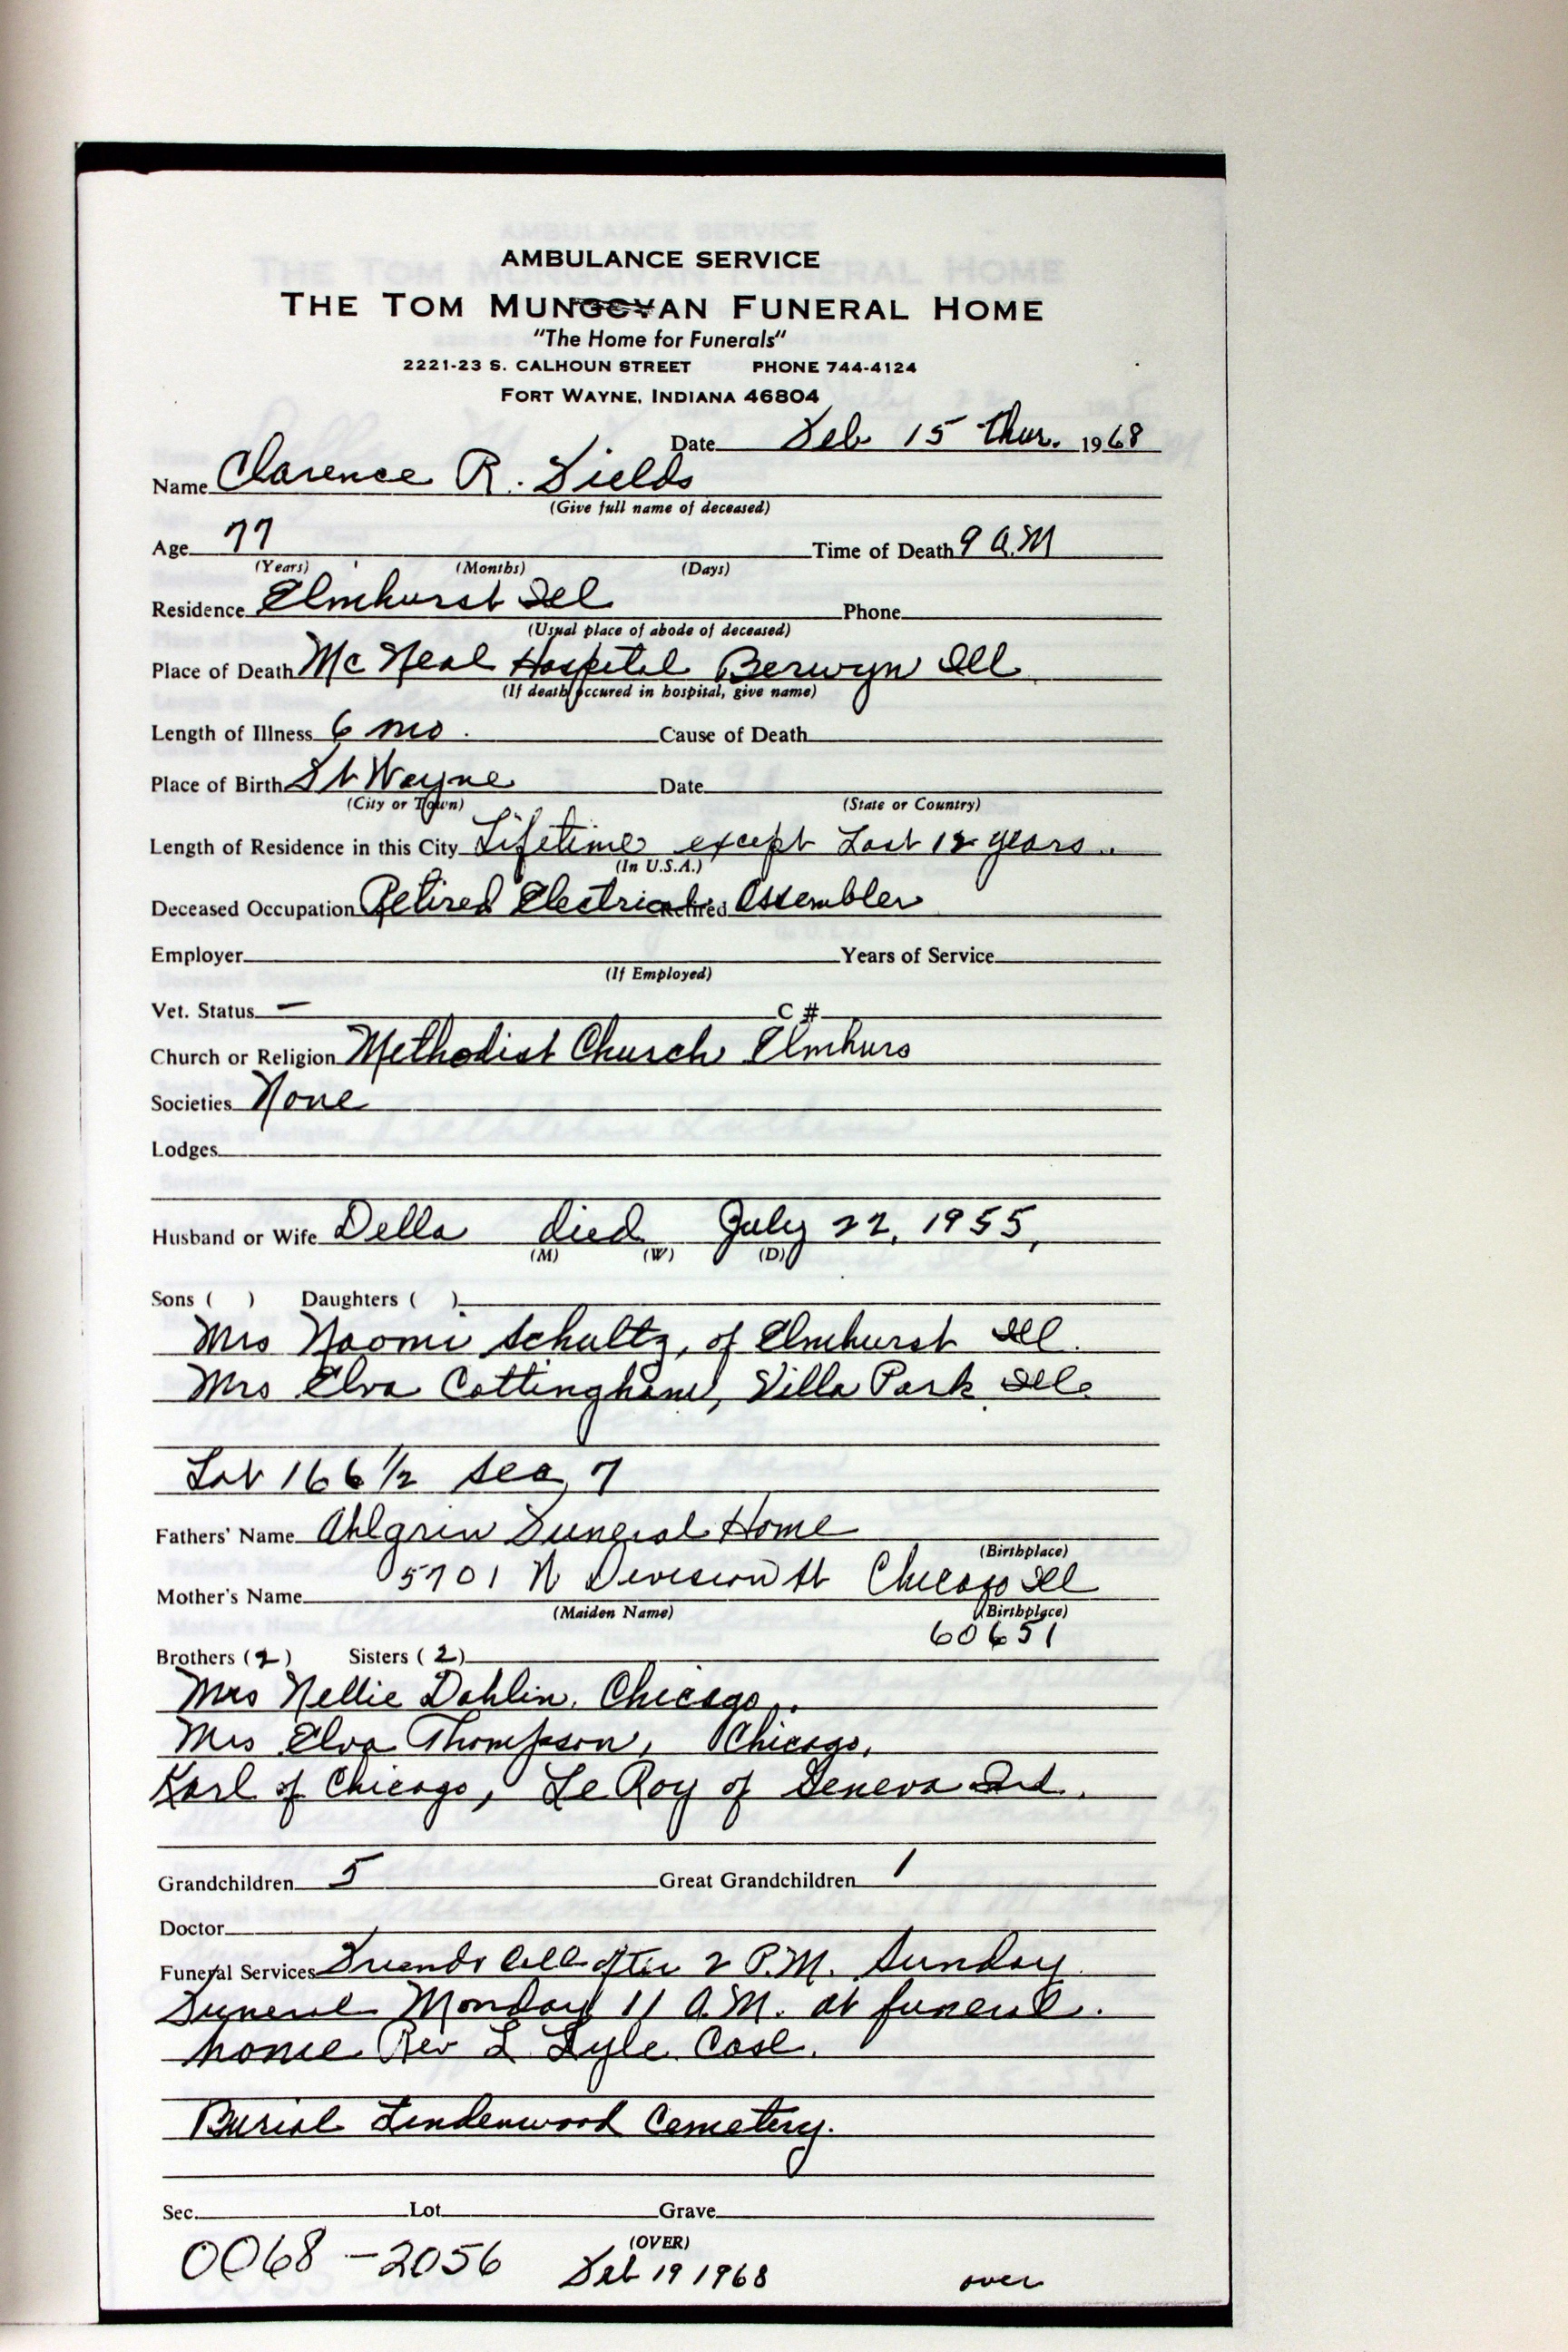 AMBULANCE SERVICE
THE TOM MUNGOVAN FUNERAL HOME
"The Home for Funerals"
2221-23 S. CALHOUN STREET PHONE 744-4124
FORT WAYNE, INDIANA 46804
Date Feb 15 Thur. 1968
Name Clarence R. Fields
(Give full name of deceased)
Age 77 Time of Death 9 A.M
(Years) (Months) (Days)
Residence Elmhurst Ill Phone
(Usual place of abode of deceased)
Place of Death Mc Neal Hospital Berwyn Ill
(If death occured in hospital, give name)
Length of Illness 6 mo. Cause of Death
Place of Birth Ft Wayne Date
(City or Town) (State or Country)
Length of Residence in this City Lifetime except Last 12 years.
(In U.S.A.)
Deceased Occupation Retired Electrical Retired Assembler
Employer Years of Service
(If Employed)
Vet. Status — C #
Church or Religion Methodist Church Elmhurs
Societies None
Lodges
Husband or Wife Della died July 22, 1955,
(M) (W) (D)
Sons ( ) Daughters ( )
Mrs Naomi Schultz, of Elmhurst Ill.
Mrs Elva Cottingham, Villa Park Ill.
Lot 166 1/2 Sec 7
Fathers' Name Ahlgrin Funeral Home
(Birthplace)
Mother's Name 5701 N Division St Chicago Ill
(Maiden Name) (Birthplace)
60651
Brothers (2) Sisters (2)
Mrs Nellie Dahlin, Chicago,.
Mrs Elva Thompson, Chicago,
Karl of Chicago, Le Roy of Geneva Ind.
Grandchildren 5 Great Grandchildren 1
Doctor
Funeral Services Friends Call after 2 P.M. Sunday
Funeral Monday 11 A.M. at funeral.
home Rev L Lyle Case.
Burial Lindenwood Cemetery.
Sec. Lot Grave
(OVER)
0068-2056 Feb 19 1968 over